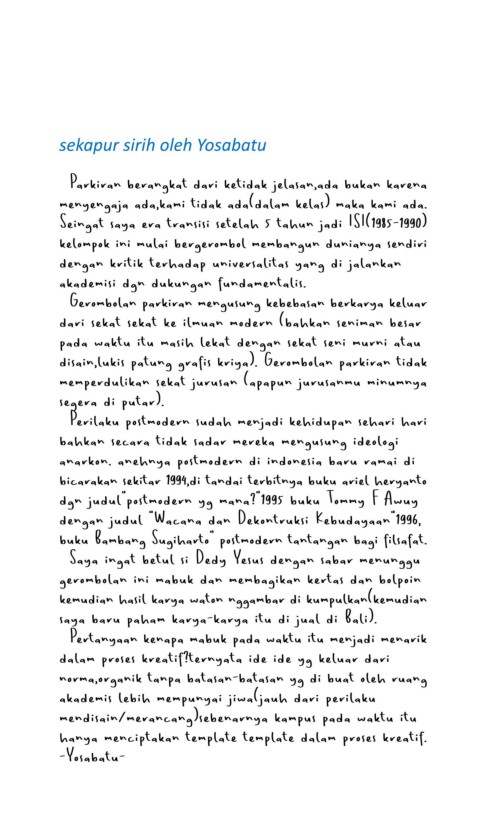 sekapur sirih oleh Yosabatu
Parkiran berangkat dari ketidak jelasan,ada bukan karena
menyengaja ada,kami tidak ada(dalam kelas) maka kami ada.
Seingat saya era transisi setelah 5 tahun jadi ISI(1985-1990)
kelompok ini mulai bergerombol membangun dunianya sendiri
dengan kritik terhadap universalitas yang di jalankan
akademisi dgn dukungan fundamentalis.
Gerombolan parkiran mengusung kebebasan berkarya keluar
dari sekat sekat ke ilmuan modern (bahkan seniman besar
pada waktu itu masih lekat dengan sekat seni murni atau
disain,lukis patung grafis kriya). Gerombolan parkiran tidak
memperdulikan sekat jurusan (apapun jurusanmu minumnya
segera di putar).
Perilaku postmodern sudah menjadi kehidupan sehari hari
bahkan secara tidak sadar mereka mengusung ideologi
anarkon. anehnya postmodern di indonesia baru ramai di
bicarakan sekitar 1994,di tandai terbitnya buku ariel heryanto
dgn judul"postmodern yg mana?"1995 buku Tommy F Awuy
dengan judul "Wacana dan Dekontruksi Kebudayaan"1996,
buku Bambang Sugiharto" postmodern tantangan bagi filsafat.
Saya ingat betul si Dedy Yesus dengan sabar menunggu
gerombolan ini mabuk dan membagikan kertas dan bolpoin
kemudian hasil karya waton nggambar di kumpulkan(kemudian
saya baru paham karya-karya itu di jual di Bali).
Pertanyaan kenapa mabuk pada waktu itu menjadi menarik
dalam proses kreatif?ternyata ide ide yg keluar dari
norma,organik tanpa batasan-batasan yg di buat oleh ruang
akademis lebih mempunyai jiwa(jauh dari perilaku
mendisain/merancang)sebenarnya kampus pada waktu itu
hanya menciptakan template template dalam proses kreatif.
-Yosabatu-